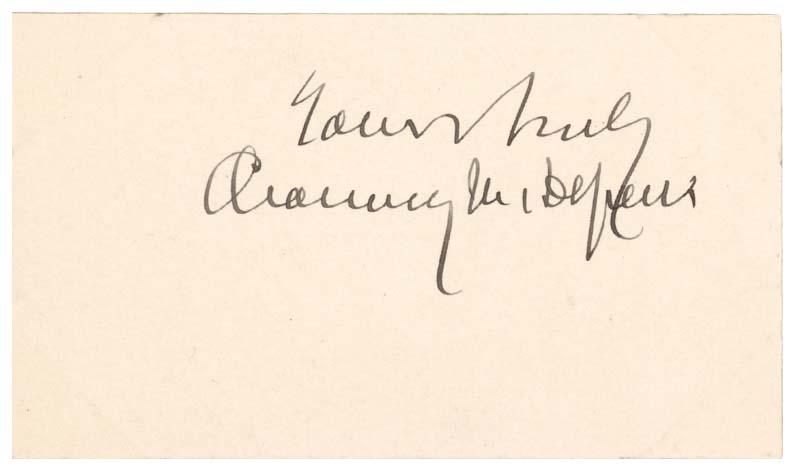 Yours truly
Chauncey M. Depew